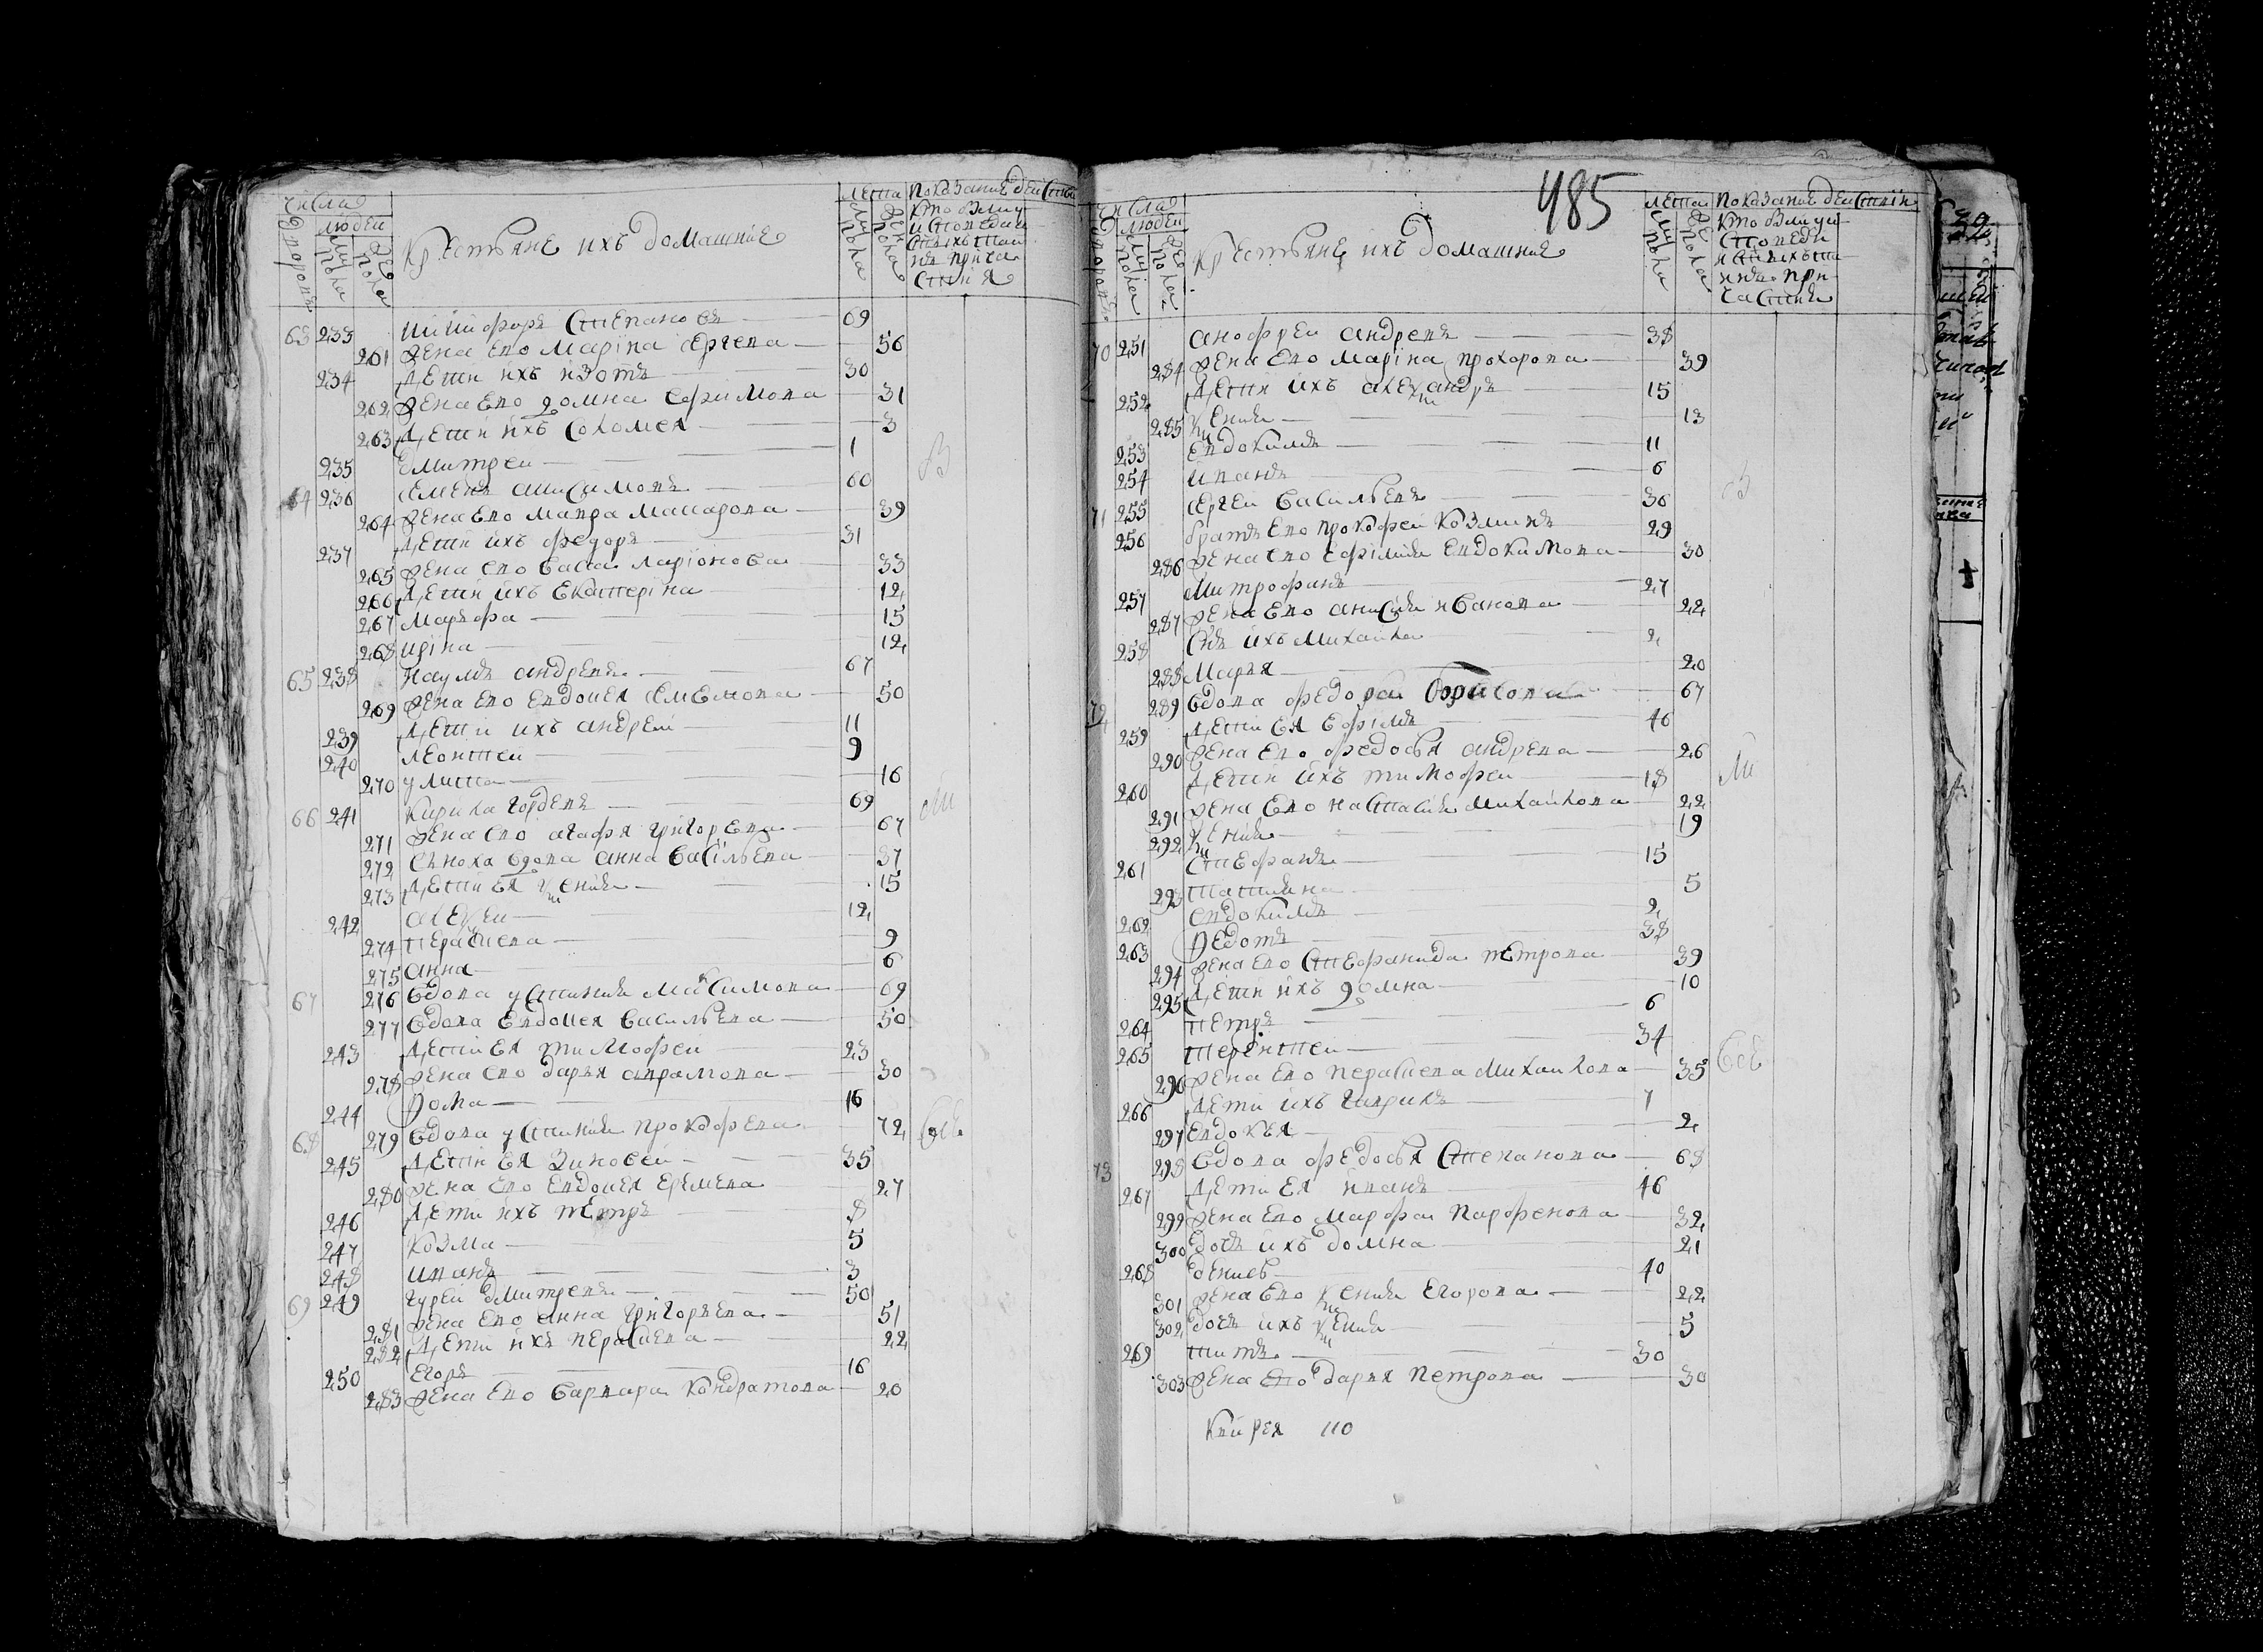 числа
людеи
дворовъ
му: пола
же: пола
Крестьяне ихъ домашние
лета
му: пола
жен: пола
показание деиств
кто были у
исповеди и
святыхъ таи
нъ прича
стия
63 233 Никифоръ Степановъ — 69
261 жена ево Марiна Сергева — 56
234 дети ихъ изотъ — 30
262 жена ево домна Ефимова — 31
263 дети ихъ Соломея — 3
235 дмитреи — 1
64 236 Семенъ Анисимовъ — 60
264 жена ево Мавра Макарова — 39
237 дети ихъ федоръ — 31
265 жена ево Васа Ларiонова — 33
266 дети ихъ Екатерiна — 12
267 Марфа — 15
268 ирiна — 12
65 238 Наумъ андревъ — 67
269 жена ево Евдокея Семенова — 50
239 дети ихъ андреи — 11
240 леонтеи — 9
270 улита — 16
66 241 Кирила гордевъ — 69
271 жена ево агафя григорева — 67
272 сноха вдова анна Васiльева — 37
273 дети ея Ксения — 15
242 алексеи — 12
274 Пераскева — 9
275 анна — 6
67 276 вдова устиния Максимова — 69
277 вдова Евдокея Васильева — 50
243 дети ея тимофеи — 23
278 жена ево дарья аврамова — 30
244 фома — 16
68 279 вдова устиния прокофева — 72
245 дети ея Зиновеи — 35
280 жена ево Евдокея Еремева — 27
246 дети ихъ петръ — 8
247 козма — 5
248 иванъ — 3
69 249 гуреи дмитревъ — 50
281 жена ево анна григорьева — 51
282 дети ихъ Пераскева — 22
250 Егоръ — 16
283 жена ево Варвара Кондратова — 20
485
числа
людеи
дворовъ
му: пола
же: пола
Крестьяне ихъ домашние
лета
му: пола
же: пола
показание деиствiи
кто были у и
споведи
и святыхъ та
инъ при
частия
70 251 анофреи андревъ — 38
284 жена ево Марiна прохорова — 39
252 дети ихъ александръ — 15
285 Ксения — 13
253 Евдокимъ — 11
254 иванъ — 6
71 255 Сергеи Васильевъ — 36
256 братъ ево прокофеи козминъ — 29
286 жена ево Ефiмия Евдокимова — 30
257 Митрофанъ — 27
287 жена ево анисия иванова — 22
258 снъ ихъ Михаила — 2
288 Марья — 20
72 289 вдова федора борисова — 67
259 дети ея Ефимъ — 46
290 жена ево федосья андрева — 26
260 дети ихъ тимофеи — 18
291 жена ево настасия Михаилова — 22
292 Ксения — 19
261 Стефанъ — 15
293 татияна — 5
262 евдокимъ — 2
263 федотъ — 38
294 жена ево Стефанида петрова — 39
295 дети ихъ домна — 10
264 петръ — 6
265 терентеи — 34
296 жена ево пераскева Михаилова — 35
266 дети ихъ гаврилъ — 7
297 Евдокея — 2
73 298 вдова федосья Степанова — 68
267 дети ея иванъ — 46
299 жена ево марфа парфенова — 32
300 дочь ихъ домна — 21
268 денисъ — 40
301 жена ево Ксения Егорова — 22
302 дочь ихъ Ксения — 5
269 титъ — 30
303 жена ево дарья петрова — 30
110